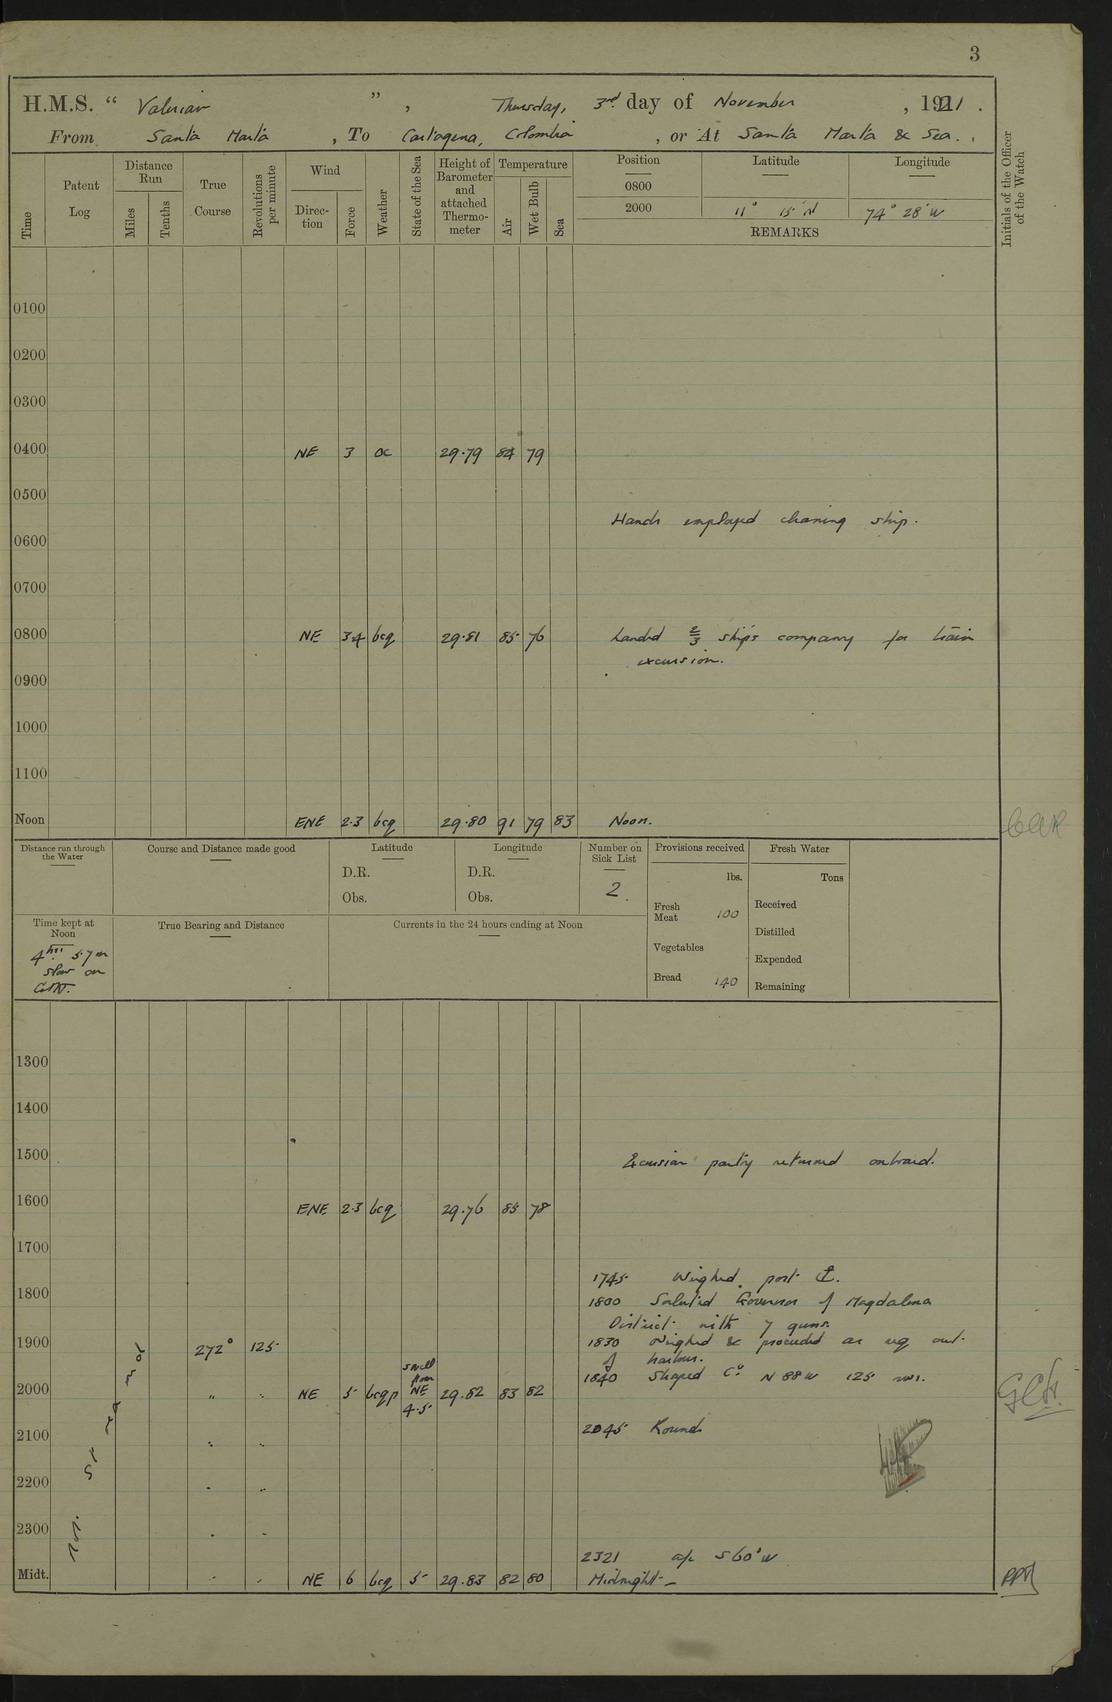 3
H.M.S. “ Valerian ” , Thursday, 3rd. day of November , 1921 .
From Santa Marta , To Cartagena, Colombia , or At Santa Marta & Sea. .
Time
Patent Log
Distance Run
Miles
Tenths
True Course
Revolutions per minute
Wind
Direction
Force
Weather
State of the Sea
Height of Barometer and attached Thermometer
Temperature
Air
Wet Bulb
Sea
Position Latitude Longitude
0800
2000 11° 15' N 74° 28' W
REMARKS
Initials of the Officer of the Watch
0100
0200
0300
0400 NE 3 oc 29.79 84 79
0500
Hands employed cleaning ship.
0600
0700
0800 NE 3.4 bcq 29.81 85 76 Landed 2/3 ship's company for train
excursion.
0900
1000
1100
Noon ENE 2.3 bcq 29.80 91 79 83 Noon.
Distance run through the Water
Course and Distance made good
Latitude
D.R.
Obs.
Longitude
D.R.
Obs.
Number on Sick List
2.
Provisions received
lbs.
Fresh Meat 100
Vegetables
Bread 140
Fresh Water
Tons
Received
Distilled
Expended
Remaining
Time kept at Noon
4hrs 57m
slow on
GMT.
True Bearing and Distance
Currents in the 24 hours ending at Noon
1300
1400
1500 Excursion party returned onboard.
1600 ENE 2.3 bcq 29.76 85 78
1700
1745 Weighed port ⚓.
1800 1800 Saluted Governor of Magdalena
District with 7 guns.
1900 272° 125 1830 Weighed & proceeded as req out
of harbour.
1840 Shaped Co N 88 W 125 revs.
2000 " " NE 5 bcqp swell from NE 4.5 29.82 83 82
2100 " " 2045 Rounds
2200 " "
2300 " "
2321 a/c S 60° W
Midt. " " NE 6 bcq 5 29.83 82 80 Midnight –
Not